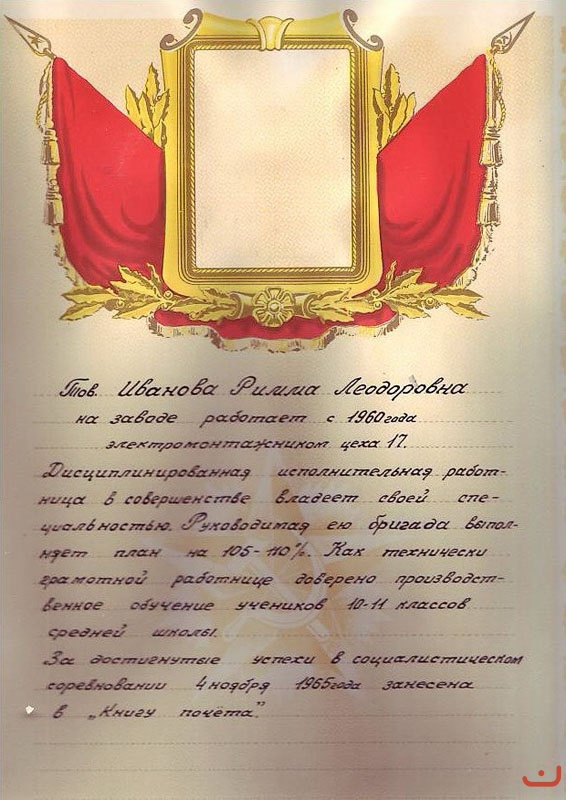 Тов. Иванова Римма Леодоровна
на заводе работает с 1960 года
электромонтажником цеха 17.
Дисциплинированная исполнительная работ-
ница в совершенстве владеет своей спе-
циальностью. Руководимая ею бригада выпол-
няет план на 105-110%. Как технически
грамотной работнице доверено производст-
венное обучение учеников 10-11 классов
средней школы.
За достигнутые успехи в социалистическом
соревновании 4 ноября 1965 года занесена
в „Книгу почёта".